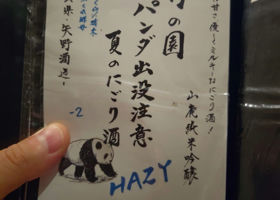 甘さ優しくミルキーなにごり酒！
山廃純米吟醸
竹の園
パンダ出没注意
夏のにごり酒
県・矢野酒造
-2
HAZY